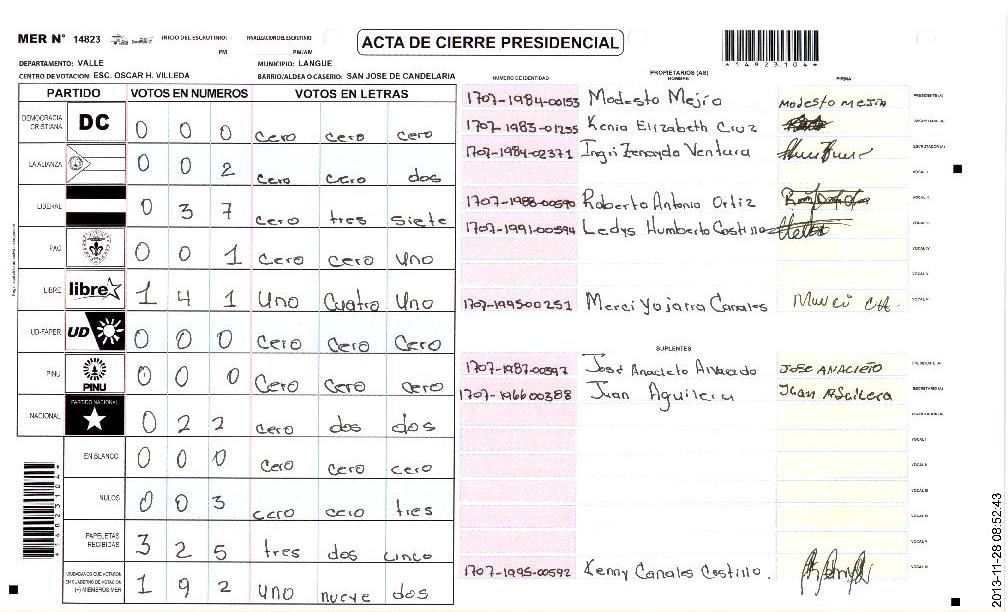 MER N° 14823 INICIO DEL ESCRUTINIO: FINALIZACION DEL ESCRUTINIO
PM PM/AM
ACTA DE CIERRE PRESIDENCIAL
*14823104*
DEPARTAMENTO: VALLE MUNICIPIO: LANGUE
CENTRO DE VOTACION: ESC. OSCAR H. VILLEDA BARRIO/ALDEA O CASERIO: SAN JOSE DE CANDELARIA
PARTIDO VOTOS EN NUMEROS VOTOS EN LETRAS
DEMOCRACIA CRISTIANA DC 0 0 0 cero cero cero
LA ALIANZA 0 0 2 cero cero dos
LIBERAL 0 3 7 cero tres siete
PAC 0 0 1 cero cero uno
LIBRE libre 1 4 1 uno cuatro uno
UD-FAPER UD 0 0 0 cero cero cero
PINU PINU 0 0 0 cero cero cero
NACIONAL PARTIDO NACIONAL 0 2 2 cero dos dos
EN BLANCO 0 0 0 cero cero cero
NULOS 0 0 3 cero cero tres
PAPELETAS RECIBIDAS 3 2 5 tres dos cinco
CIUDADANOS QUE VOTARON EN CUADERNO DE VOTACION (+) MIEMBROS MER 1 9 2 uno nueve dos
*14823104*
PROPIETARIOS (AS)
NUMERO DE IDENTIDAD NOMBRE FIRMA
1707-1984-00153 Modesto Mejio MODESTO MEJIA PRESIDENTE (A)
1707-1983-01235 Kenia Elizabeth Cruz SECRETARIO (A)
1707-1984-02371 Ingri Zenayda Ventura ESCRUTADOR (A)
VOCAL I
1707-1988-00590 Roberto Antonio Ortiz VOCAL II
1707-1991-00594 Ledys Humberto Costillo VOCAL III
VOCAL IV
VOCAL V
1707-1995-00251 Merci Yojarra Canales VOCAL VI
SUPLENTES
1707-1987-00597 José Anacleto Alvarado JOSE ANACLETO PRESIDENTE (A)
1707-1966-00388 Juan Aguilera Juan Aguilera SECRETARIO (A)
ESCRUTADOR (A)
VOCAL I
VOCAL II
VOCAL III
VOCAL IV
VOCAL V
1707-1995-00592 Kenny Canales Costillo. VOCAL VI
2013-11-28 08:52:43